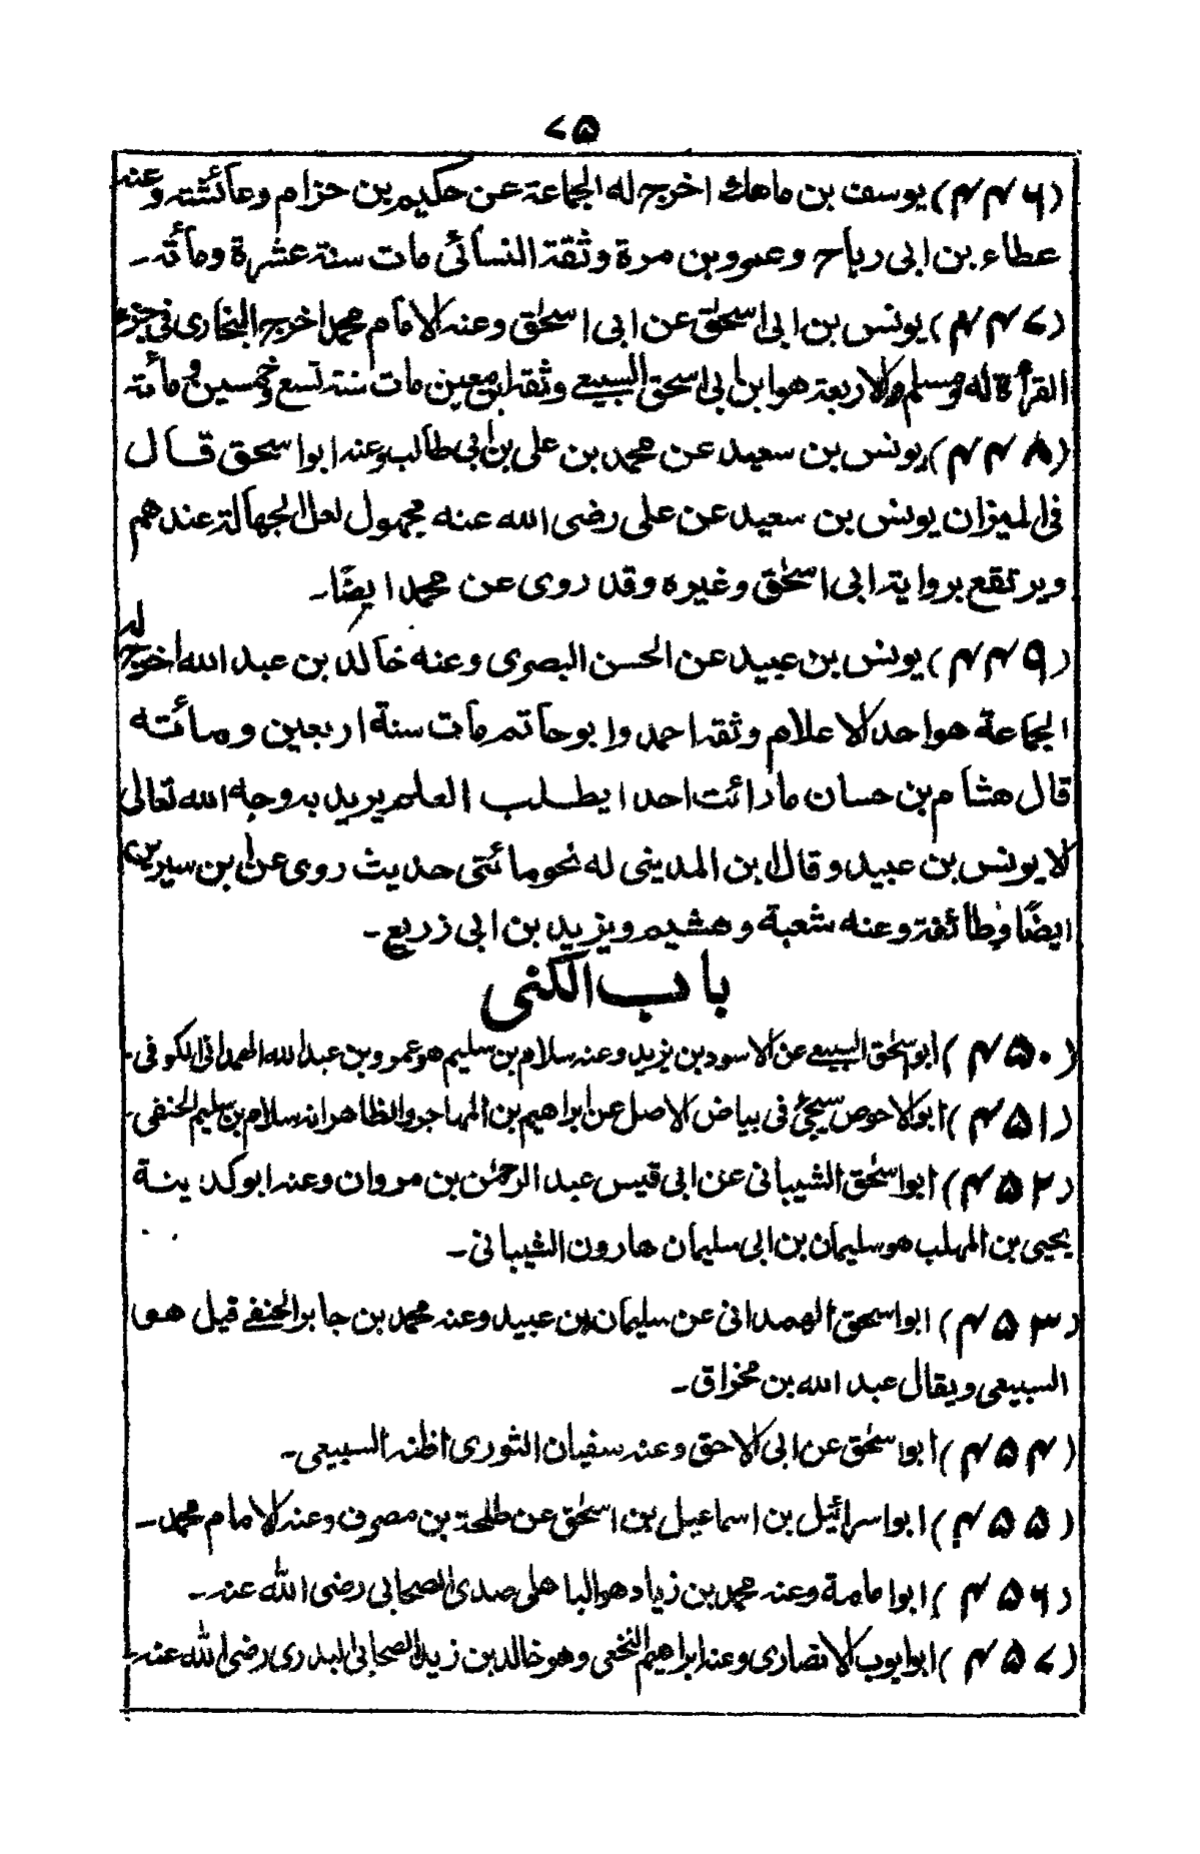 ۷۵
(۴۴۶) يوسف بن ماهك اخرج له الجماعة عن حكيم بن حزام وعائشة وعنه
عطاء بن ابى رباح وعمرو بن مرة وثقة النسائى مات سنة عشرة ومأته ۔
(۴۴۷) يونس بن ابى اسحٰق عن ابى اسحٰق وعنه الامام محمد اخرج البخارى فى جزء
القرأة له ومسلم والاربعة هو ابن ابى اسحق السبيعى وثقه ابن معين مات سنة تسع وخمسين ومأته
(۴۴۸) يونس بن سعيد عن محمد بن على بن ابى طالب وعنه ابو اسحق قال
فى الميزان يونس بن سعيد عن على رضى الله عنه مجهول لعل الجهالة عندهم
ويرتفع برواية ابى اسحٰق وغيره وقد روى عن محمد ايضًا۔
(۴۴۹) يونس بن عبيد عن الحسن البصرى وعنه خالد بن عبد الله اخرج له
الجماعة هو احد الاعلام وثقه احمد وابو حاتم مات سنة اربعين ومأئته
قال هشام بن حسان مارائت احدا يطلب العلم يريد به وجه الله تعالى
الا يونس بن عبيد وقال ابن المدينى له نحو مائتى حديث روى عن ابن سيرين
ايضًا وطائفة وعنه شعبة وهشيم ويزيد بن ابى زريع۔
باب الكنى
(۴۵۰) ابو اسحٰق السبيعى عن الاسود بن يزيد وعنه سلام بن سليم هو عمرو بن عبد الله الهمدانى الكوفى۔
(۴۵۱) ابو الاحوص سيجئ فى بياض الاصل عن ابراهيم بن المهاجر والظاهر انه سلام بن سليم الحنفى۔
(۴۵۲) ابو اسحٰق الشيبانى عن ابى قيس عبد الرحمٰن بن مروان وعنه ابو كدينة
يحيى بن المهلب هو سليمان بن ابى سليمان هارون الشيبانى۔
(۴۵۳) ابو اسحق الهمدانى عن سليمان بن عبيد وعنه محمد بن جابر الحنفى قيل هو
السبيعى ويقال عبد الله بن مخراق۔
(۴۵۴) ابو اسحٰق عن ابى الاحق وعنه سفيان الثورى اظنه السبيعى۔
(۴۵۵) ابو اسرائيل بن اسماعيل بن اسحٰق عن طلحة بن مصرف وعنه الامام محمد۔
(۴۵۶) ابو امامة وعنه محمد بن زياد هو الباهلى صدى الصحابى رضى الله عنه۔
(۴۵۷) ابو ايوب الانصارى وعنه ابراهيم النخعى وهو خالد بن زيد الصحابى البدرى رضى الله عنه۔